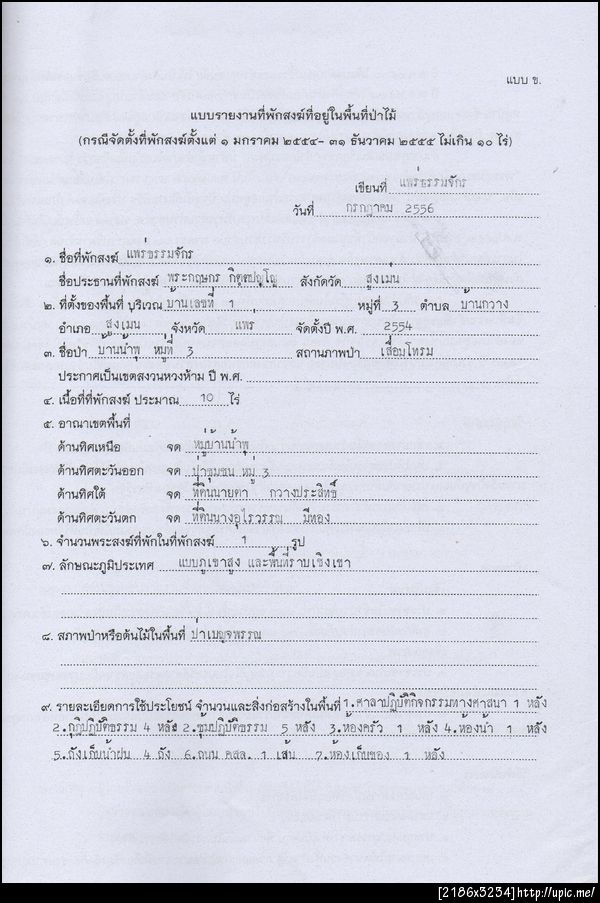 แบบ ข.
แบบรายงานที่พักสงฆ์ที่อยู่ในพื้นที่ป่าไม้
(กรณีจัดตั้งที่พักสงฆ์ตั้งแต่ ๑ มกราคม ๒๕๕๔- ๓๑ ธันวาคม ๒๕๕๕ ไม่เกิน ๑๐ ไร่)
เขียนที่ แพร่ธรรมจักร
วันที่ กรกฎาคม 2556
๑. ชื่อที่พักสงฆ์ แพร่ธรรมจักร
ชื่อประธานที่พักสงฆ์ พระกฤษกร กิตฺตปญฺโญ สังกัดวัด สูงเม่น
๒. ที่ตั้งของพื้นที่ บริเวณ บ้านเลขที่ 1 หมู่ที่ 3 ตำบล บ้านกวาง
อำเภอ สูงเม่น จังหวัด แพร่ จัดตั้งปี พ.ศ. 2554
๓. ชื่อป่า บ้านน้ำพุ หมู่ที่ 3 สถานภาพป่า เสื่อมโทรม
ประกาศเป็นเขตสงวนหวงห้าม ปี พ.ศ.
๔. เนื้อที่ที่พักสงฆ์ ประมาณ 10 ไร่
๕. อาณาเขตพื้นที่
ด้านทิศเหนือ จด หมู่บ้านน้ำพุ
ด้านทิศตะวันออก จด ป่าชุมชน หมู่ 3
ด้านทิศใต้ จด ที่ดินนายตา กวางประสิทธิ์
ด้านทิศตะวันตก จด ที่ดินนางอุไรวรรณ มีทอง
๖. จำนวนพระสงฆ์ที่พักในที่พักสงฆ์ 1 รูป
๗. ลักษณะภูมิประเทศ แบบภูเขาสูง และพื้นที่ราบเชิงเขา
๘. สภาพป่าหรือต้นไม้ในพื้นที่ ป่าเบญจพรรณ
๙. รายละเอียดการใช้ประโยชน์ จำนวนและสิ่งก่อสร้างในพื้นที่ 1.ศาลาปฏิบัติกิจกรรมทางศาสนา 1 หลัง
2.กุฏิปฏิบัติธรรม 4 หลัง 2.ซุ้มปฏิบัติธรรม 5 หลัง 3.ห้องครัว 1 หลัง 4.ห้องน้ำ 1 หลัง
5.ถังเก็บน้ำฝน 4 ถัง 6.ถนน คสล. 1 เส้น 7.ห้องเก็บของ 1 หลัง
[2186x3234]http://upic.me/